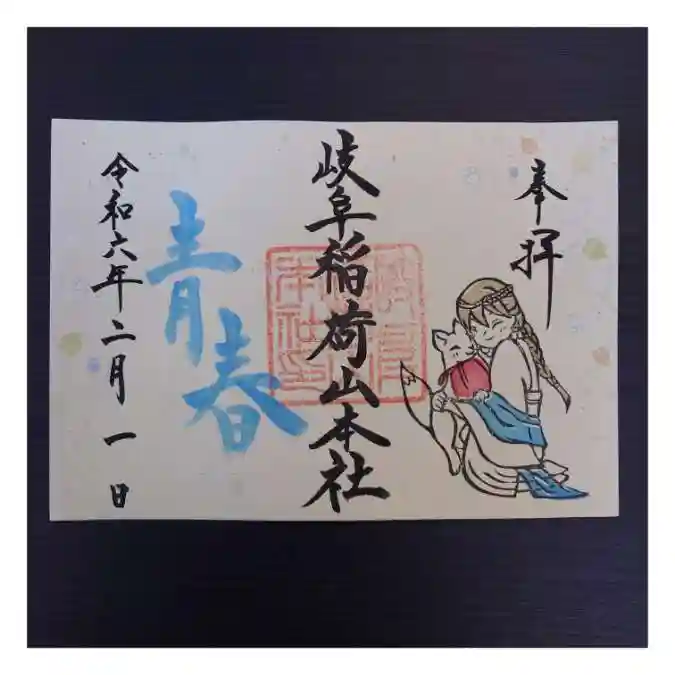 奉拝
岐阜稲荷山本社
青春
令和六年二月一日